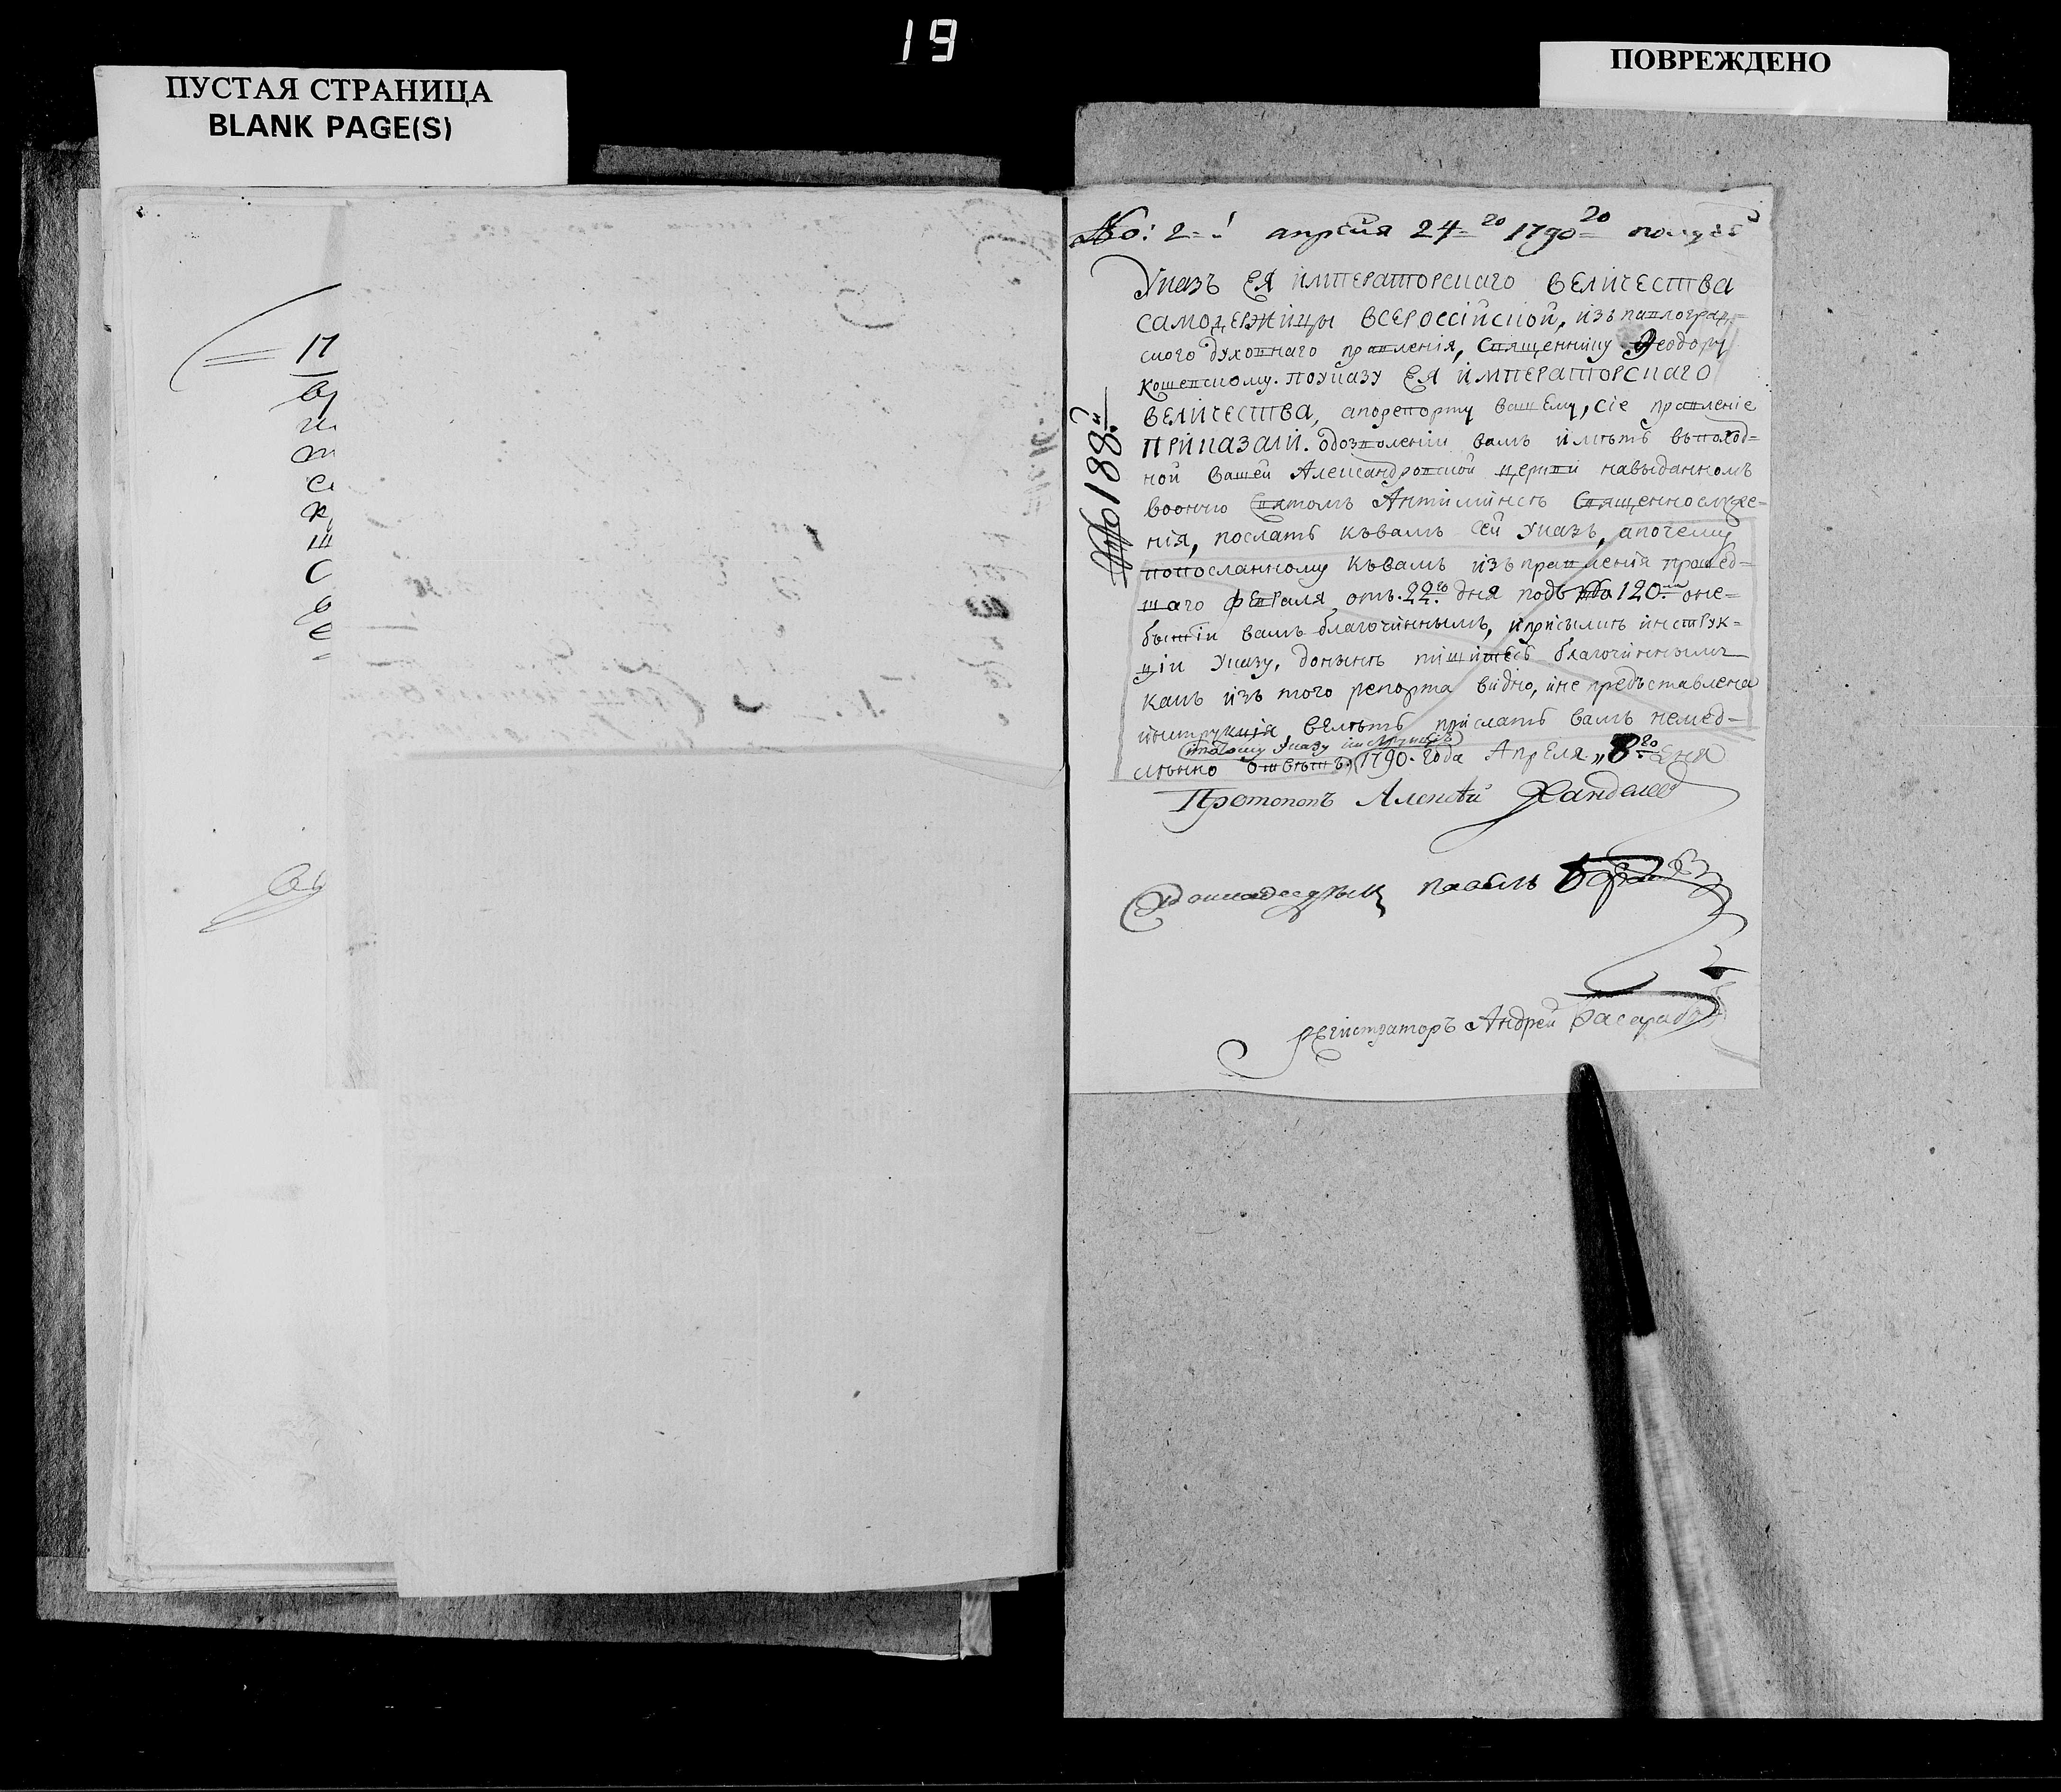 19
ПУСТАЯ СТРАНИЦА
BLANK PAGE(S)
ПОВРЕЖДЕНО
17
No: 2 = апреля 24 = го 1790 = го получ
Указъ ЕЯ ИМПЕРАТОРСКАГО ВЕЛИЧЕСТВА
САМОДЕРЖИЦЫ ВСЕРОССІЙСКОЙ, изъ павлоград=
ского духовнаго правленія, Священнику Ѳеодору
Кошевскому. поуказу ЕЯ ИМПЕРАТОРСКАГО
ВЕЛИЧЕСТВА, апорепорту вашему, сіе правленіе
ПРИКАЗАЛИ. одозволеніи вамъ имѣть впоход=
ной вашей Александровской церкви навыданномъ
вооную Святомъ Антиминсѣ Священнослуже=
нія, послать къвамъ сей Указъ, апочему
попосланному къвамъ изъ правленія прошед=
шаго февраля отъ 22го дня подъ No 120м оне=
бытіи вамъ благочиннымъ, иприсылкѣ инструк=
ціи Указу, донынѣ пишитесь благочиннымъ
какъ изъ того репорта видно, ине предъставлена
инструкція велѣть прислать вамъ немед=
стоюму Указу инструкціе
лѣнно отвѣтъ. 1790. года Апреля „8го Дня
No 188й
Протопопъ Алексѣй Хандалеев
павелъ
регистраторъ Андрей Басараб